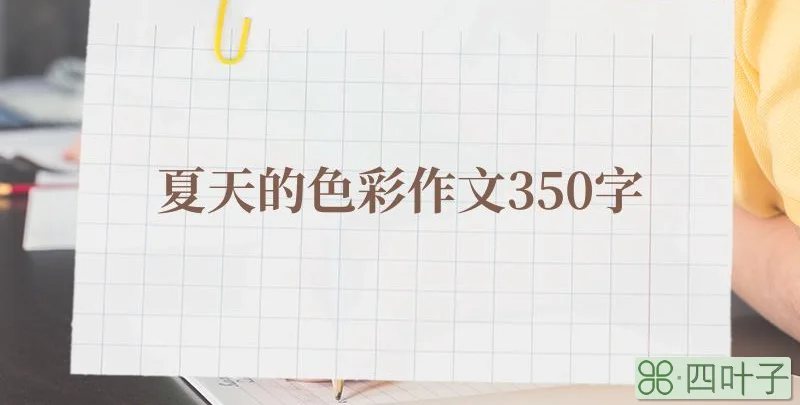 夏天的色彩作文350字
四叶子